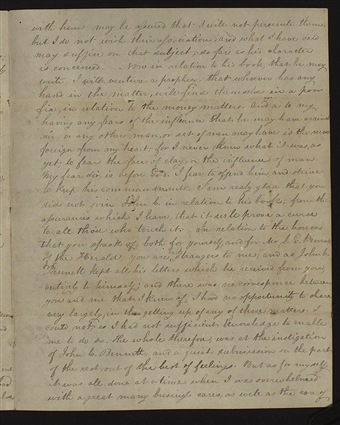 with him; may be assured that I will not persecute them
but I do not wish their association; and what I have said
may suffice on that subject, so far as his character
is concerned. Now in relation to his book, that he may
write, I will venture a prophecy, that whoever has any
hand in the matter, will find themselves in a poor
fix, in relation to the money matters. And as to my
having any fears of the influence that he may have against
me; or any other man or set of men may have is the most
foreign from my heart; for I never knew what it was, as
yet, to fear the face of clay, or the influence of man.
My fear, sir, is before God. I fear to offend him, and strive
to keep his commandments. I am really glad that you
did not join John C. in relation to his book, from the
assurances which I have, that it will prove a curse
to all those who touch it. In relation to the honors
that you speak of, both for yourself, and for Mr. J. G. Bennett
of the Herald, you are both strangers to me; and as John C.
Bennett kept all his letters which he received from you,
entirely to himself; and there was no correspondence between
you and me that I knew of, I had no opportunity to share
very largely, in the getting up of any of those matters. I
could not, as I had not sufficient knowledge to enable
me to do so. The whole therefore, was at the instigation
of John C. Bennett, and a quiet submission on the part
of the rest, out of the best of feelings. But as for myself,
it was all done at a time when I was overwhelmed
with a great many business cares, as well as the care of